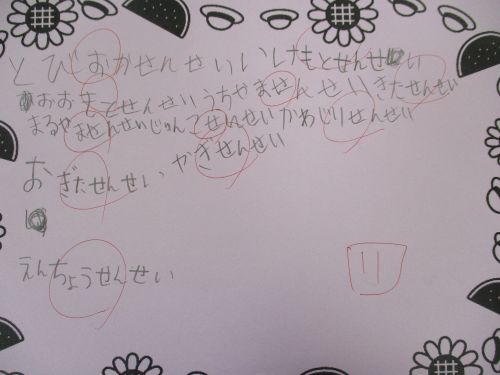 とびおかせんせいいけもとせんせい
おおもとせんせいうちやませんせいきたせんせい
まるやませんせいじゅんこせんせいかわじりせんせい
おぎたせんせい やぎせんせい
えんちょうせんせい